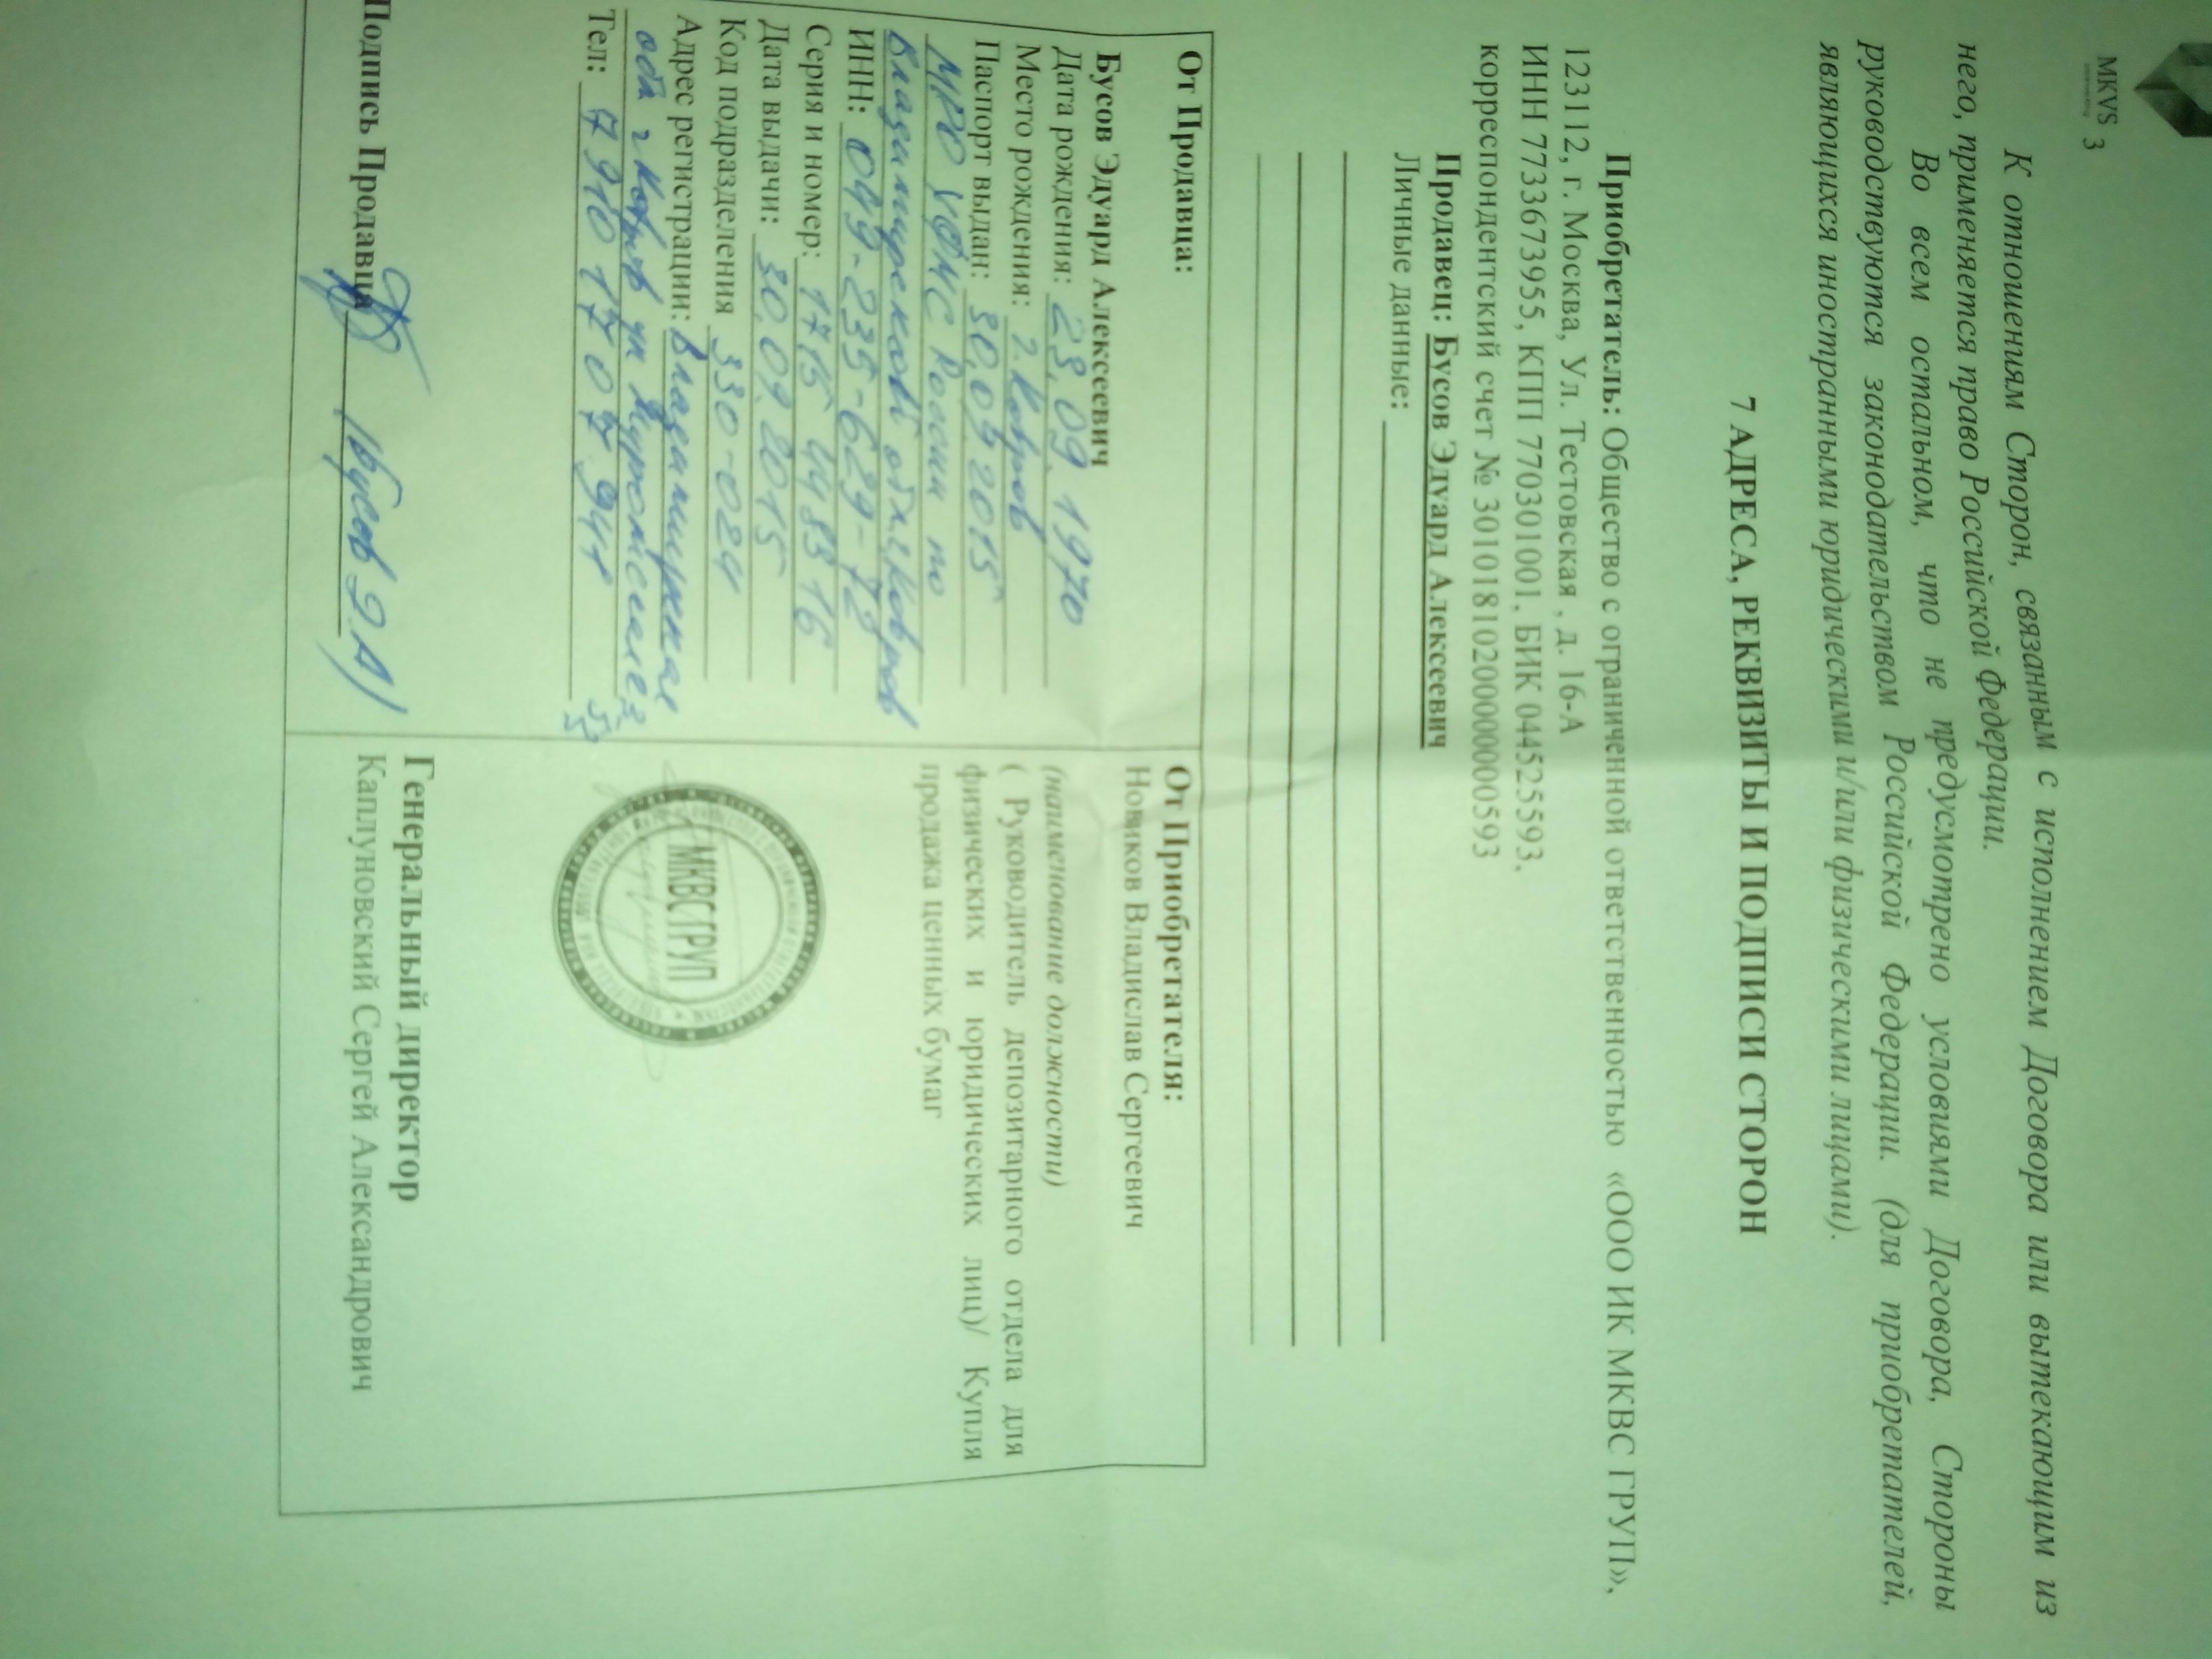 MKVS 3
К отношениям Сторон, связанным с исполнением Договора или вытекающим из
него, применяется право Российской Федерации.
Во всем остальном, что не предусмотрено условиями Договора, Стороны
руководствуются законодательством Российской Федерации. (для приобретателей,
являющихся иностранными юридическими и/или физическими лицами).
7 АДРЕСА, РЕКВИЗИТЫ И ПОДПИСИ СТОРОН
Приобретатель: Общество с ограниченной ответственностью «ООО ИК МКВС ГРУП»,
123112, г. Москва, Ул. Тестовская , д. 16-А
ИНН 7733673955, КПП 770301001, БИК 044525593.
корреспондентский счет № 30101810200000000593
Продавец: Бусов Эдуард Алексеевич
Личные данные:
От Продавца:
Бусов Эдуард Алексеевич
Дата рождения: 23.09.1970
Место рождения: г. Ковров
Паспорт выдан: 30.09 2015
МРО УФМС России по
Владимирской обл. г. Ковров
ИНН: 049-235-629-72
Серия и номер: 1715 448316
Дата выдачи: 30.09.2015
Код подразделения 330-024
Адрес регистрации: Владимирская
обл г Ковров ул
Тел: 7 910 17 07 941
Подпись Продавца /Бусов Э.А/
От Приобретателя:
Новиков Владислав Сергеевич
(наименование должности)
( Руководитель депозитарного отдела для
физических и юридических лиц)/ Купля
продажа ценных бумаг
МКВСГРУП
Генеральный директор
Каплуновский Сергей Александрович